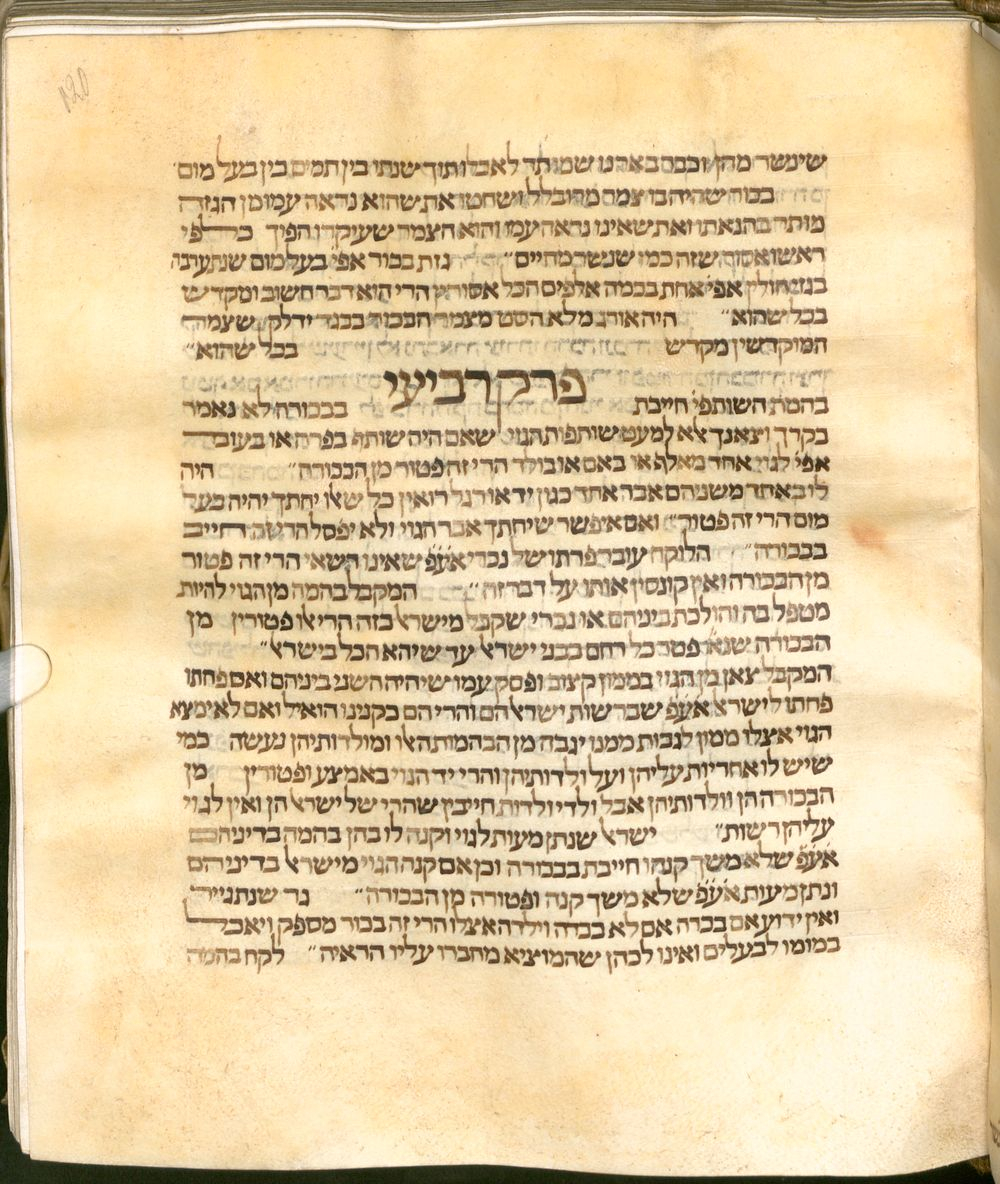 שינשר מהן וכבס באבנו שמותר לאכלו תוך שנתו בין תמים בין בעל מום
בכור שהיה בו צמר מדובלל ושחטו את שהוא נראה עמו מן הגזה
מותר בהנאתו ואת שאינו נראה עמו והוא הצמר שעיקרו הפוך כלפי
ראשו אסור שזה כמו שנשר מחיים״ גזת בכור אפי׳ בעל מום שנתערבה
בגזי חולין אפי׳ אחת בכמה אלפים הכל אסורין הרי הוא דבר חשוב ומקדש
בכל שהוא״ היה אורג מלא הסט מצמר הבכור בבגד ידלק שצמר
המוקדשין מקדש בכל שהוא״
פרק רביעי
בהמת השותפי׳ חייבת בבכורה לא נאמר
בקרך וצאנך אלא למעט שותפות הגוי שאם היה שותף בפרה או בעובר
אפי׳ לגוי אחד מאלף או באם או בולד הרי זה פטור מן הבכורה״ היה
לו באחד משניהם אבר אחד כגון יד או רגל רואין כל שאלו יחתך יהיה בעל
מום הרי זה פטור״ ואם איפשר שיחתך אבר הגוי ולא יפסל הרי זה חייב
בבכורה״ הלוקח עובר פרתו של נכרי אע״פ שאינו רשאי הרי זה פטור
מן הבכורה ואין קונסין אותו על דבר זה״ המקבל בהמה מן הגוי להיות
מטפל בה והולכת ביניהם או נכרי שקבל מישראל כזה הרי אלו פטורין מן
הבכורה שנא׳ פטר כל רחם בבני ישראל עד שיהא הכל בישראל״
המקבל צאן מן הגוי בממון קצוב ופסק עמו שיהיה השכר ביניהם ואם פחתו
פחתו לישראל אע״פ שברשות ישראל הם והרי הם כקנינו הואיל ואם לא ימצא
הגוי אצלו ממון לגבות ממנו יגבה מן הבהמות האלו ומולדותיהן נעשה כמי
שיש לו אחריות עליהן ועל ולדותיהן והרי יד הגוי באמצע ופטורין מן
הבכורה הן וולדותיהן אבל ולדי ולדות חייבין שהרי של ישראל הן ואין לגוי
עליהן רשות״ ישראל שנתן מעות לגוי וקנה לו בהן בהמה בדיניהם
אע״פ שלא משך קנהו וחייבת בבכורה וכן אם קנה הגוי מישראל בדיניהם
ונתן מעות אע״פ שלא משך קנה ופטורה מן הבכורה״ גר שנתגייר
ואין ידוע אם בכרה אם לא בכרה וילדה אצלו הרי זה בכור מספק ויאכל
במומו לבעלים ואינו לכהן שהמוציא מחברו עליו הראיה״ לקח בהמה
120